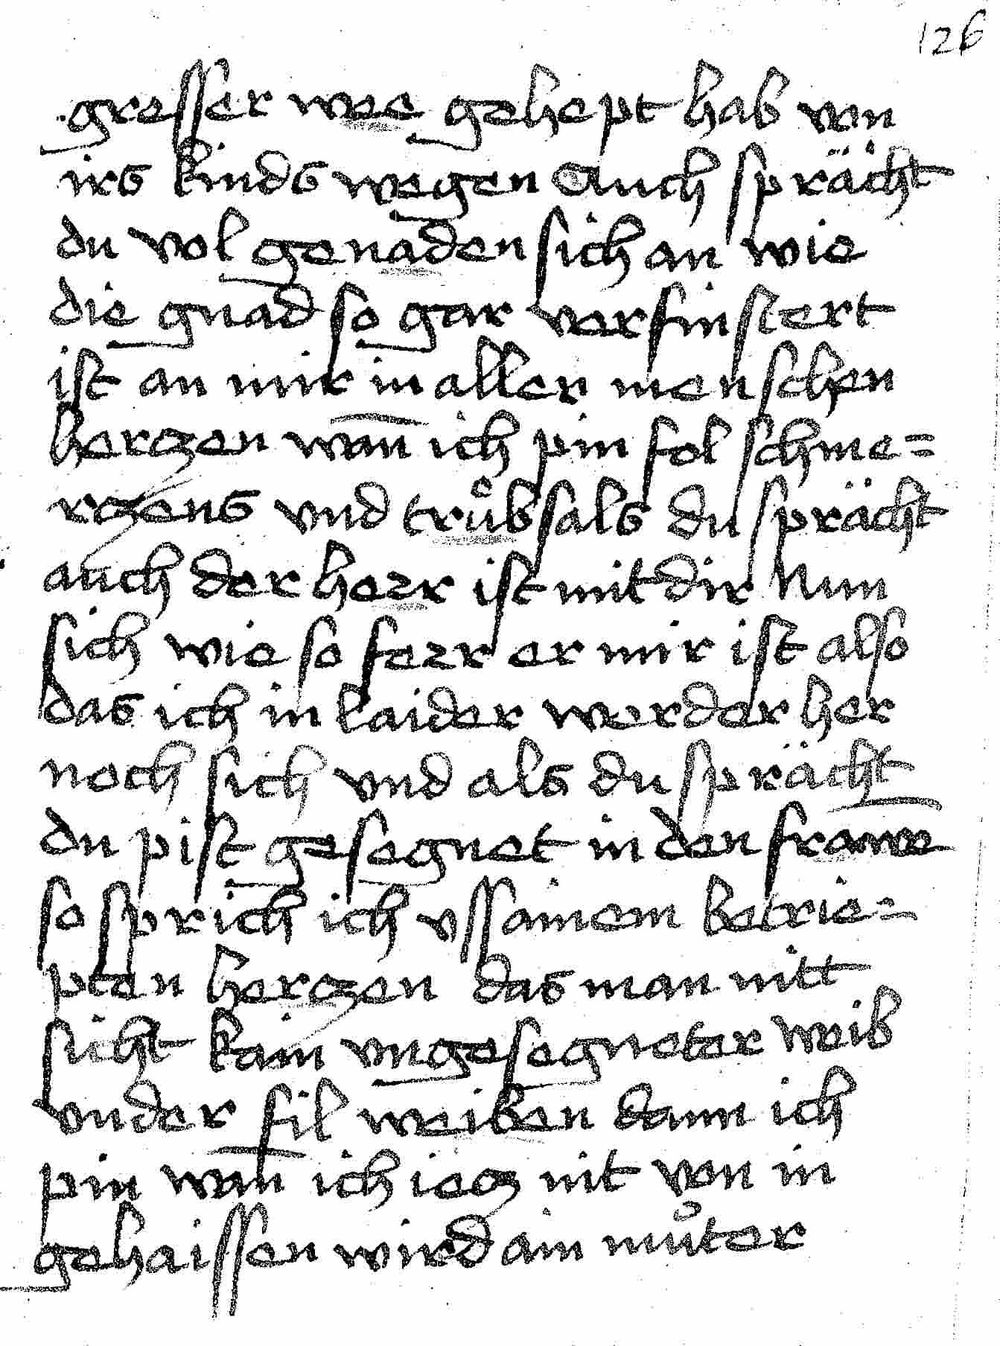 126
gresser wee gehept hab von
irs kinds wegen Auch sprächt
du vol genaden sich an wie
die gnad so gar verfinstert
ist an mir in allen menschen
herczen wan̄ ich pin fol schme=
rczens vnd trůbsals du sprächt
auch der herr ist mit dir Nun
sich wie so ferr er mir ist also
das ich in laider werder her
noch sich vnd als du sprächt
du pist gesegnet in den frawe̅
so sprich ich vssainem betrie=
pten herczen das man nitt
sicht kain vngesegneter weib
vnder fil weiben dann ich
pin wan̄ ich iecz nit von in
gehaissen wird ain můter